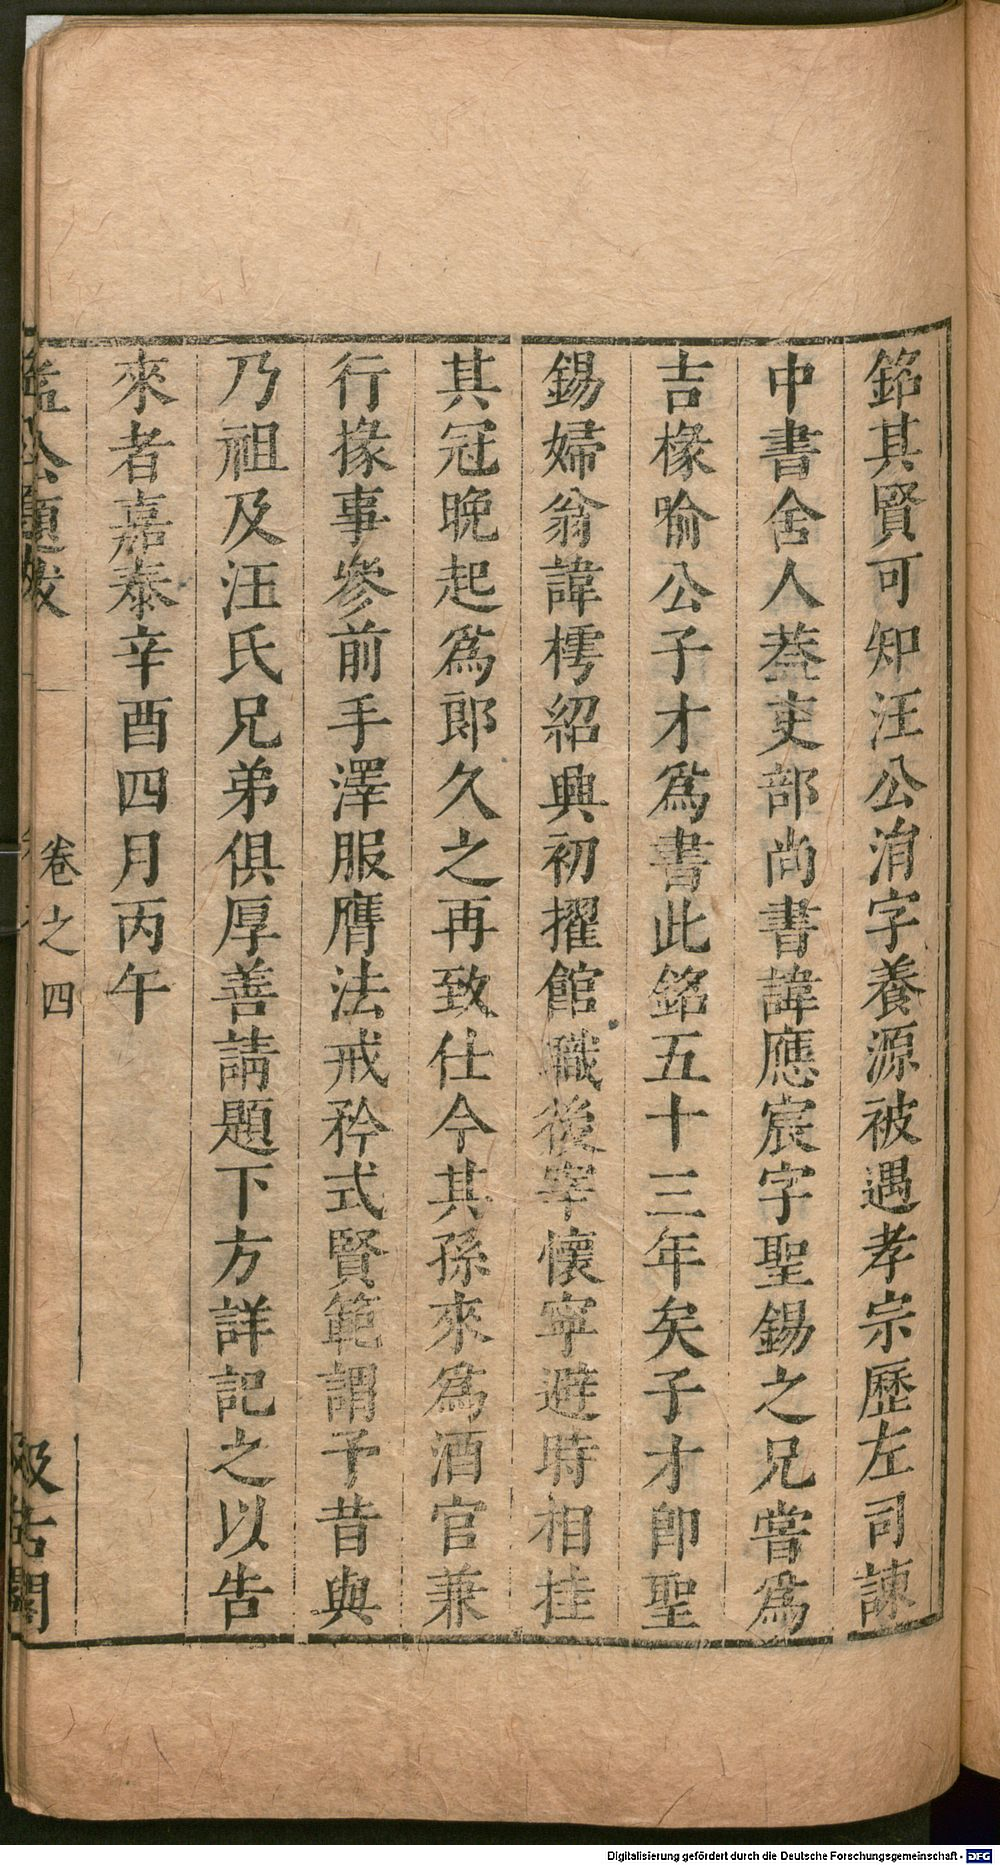 銘其賢可知汪公洧字養源被遇孝宗歷左司諫
中書舍人葢吏部尚書諱應宸字聖錫之兄嘗爲
吉椽喻公子才爲書此銘五十三年矣子才卽聖
錫婦翁諱樗紹興初擢館職後宰懷寧避時相挂
其冠晚起爲郎久之再致仕今其孫來爲酒官兼
行掾事參前手澤服膺法戒矜式賢範謂予昔與
乃祖及汪氏兄弟俱厚善請題下方詳記之以告
來者嘉泰辛酉四月丙午
益公題跋
卷之四
汲古閣
Digitalisierung gefördert durch die Deutsche Forschungsgemeinschaft - DFG